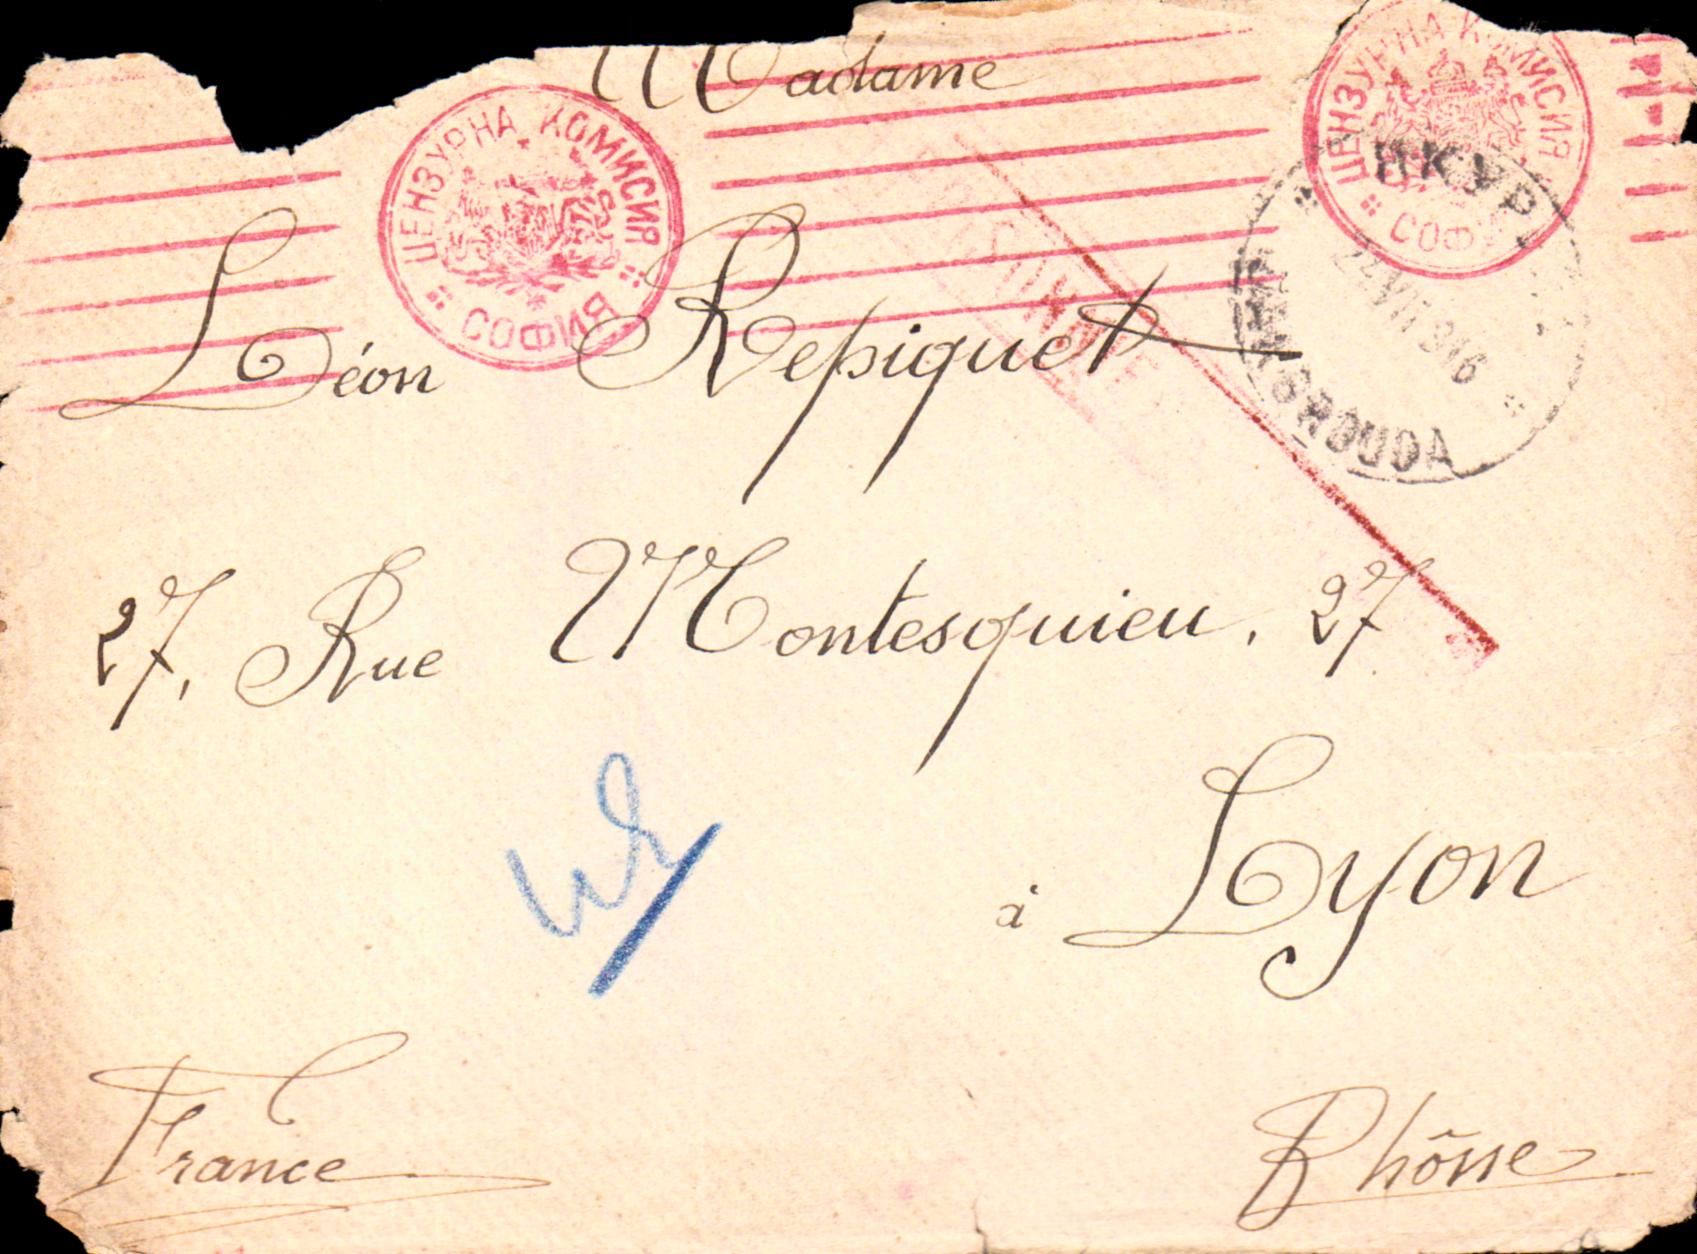 Madame
ЦЕНЗУРНА КОМИСИЯ
СОФИЯ
ЦЕНЗУРНА КОМИСИЯ
СОФИЯ
Léon Repiquet
27, Rue Montesquieu, 27
à Lyon
France
Rhône